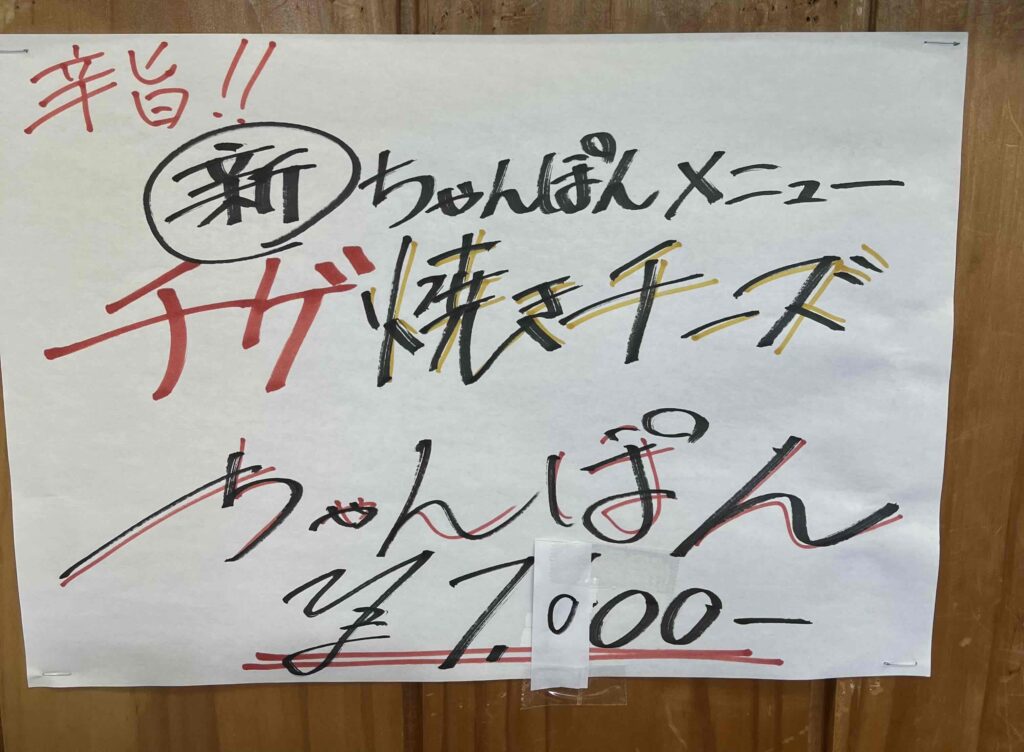 辛旨!!
新 ちゃんぽんメニュー
チゲ焼きチーズ
ちゃんぽん
¥1.000-